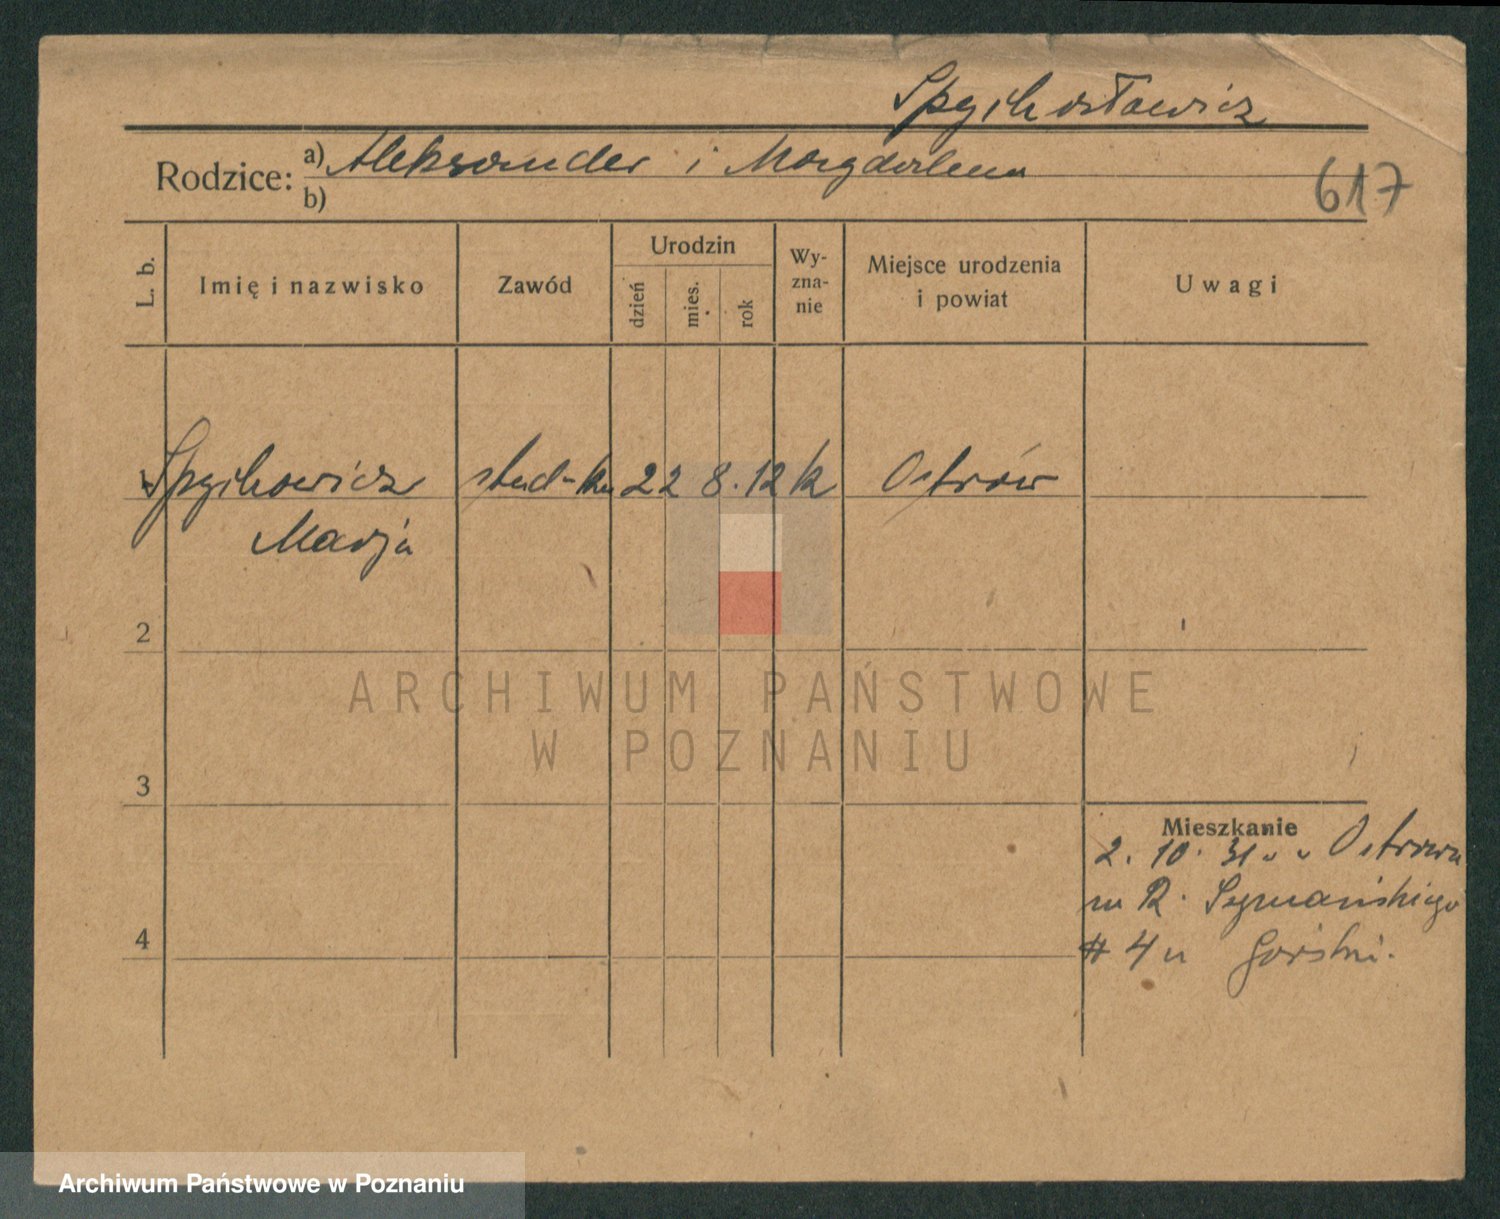 Rodzice: a) Aleksander i Magdalena
b)
617
L. b.
Imię i nazwisko
Zawód
Urodzin
dzień
mies.
rok
Wy-
zna-
nie
Miejsce urodzenia
i powiat
Uwagi
Spychowicz 22 8. 12 k Ostrów
Marja
2
3
4
Mieszkanie
2. 10. 31 Ostrowa
R. Szymańskiego
4
ARCHIWUM PAŃSTWOWE
W POZNANIU
Archiwum Państwowe w Poznaniu